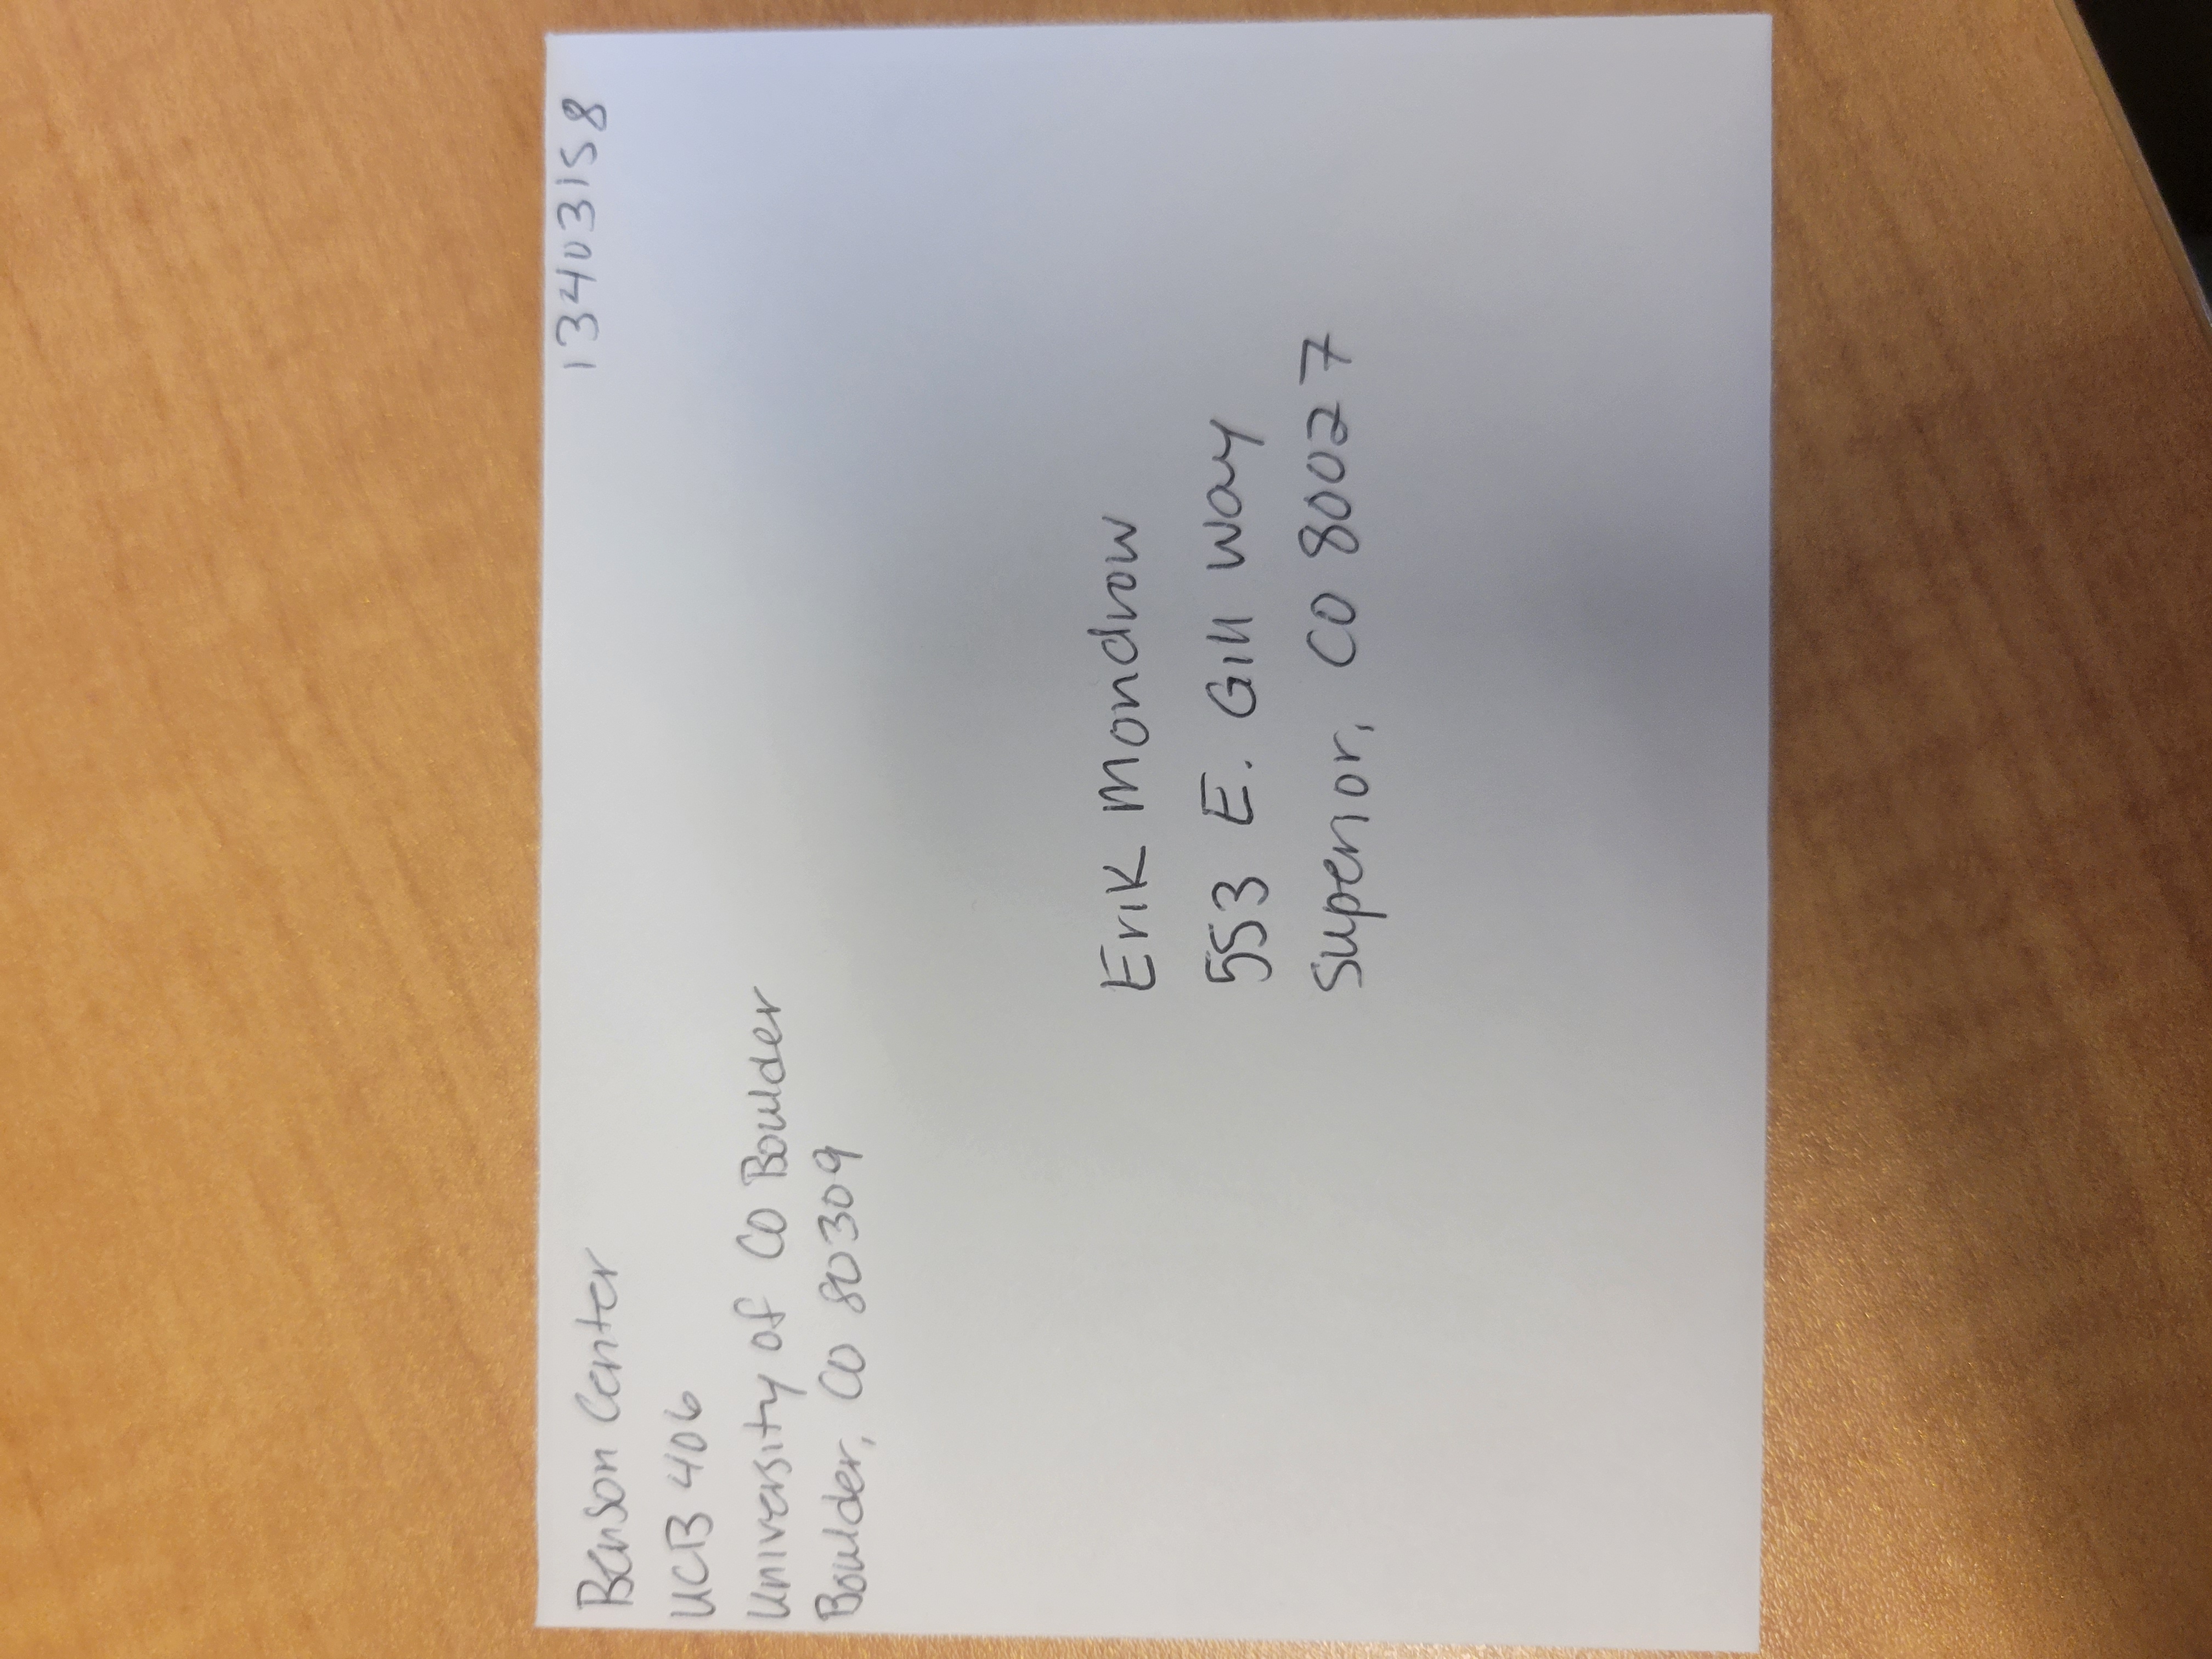 Benson Center
UCB 406
University of CO Boulder
Boulder, CO 80309
13403158
Erik Mondrow
553 E. Gill Way
Superior, CO 80027